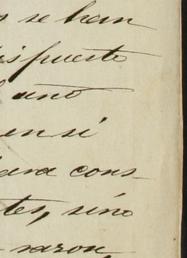 se han
dispuesto
año
en sí
para cons
tes, sino
razon,